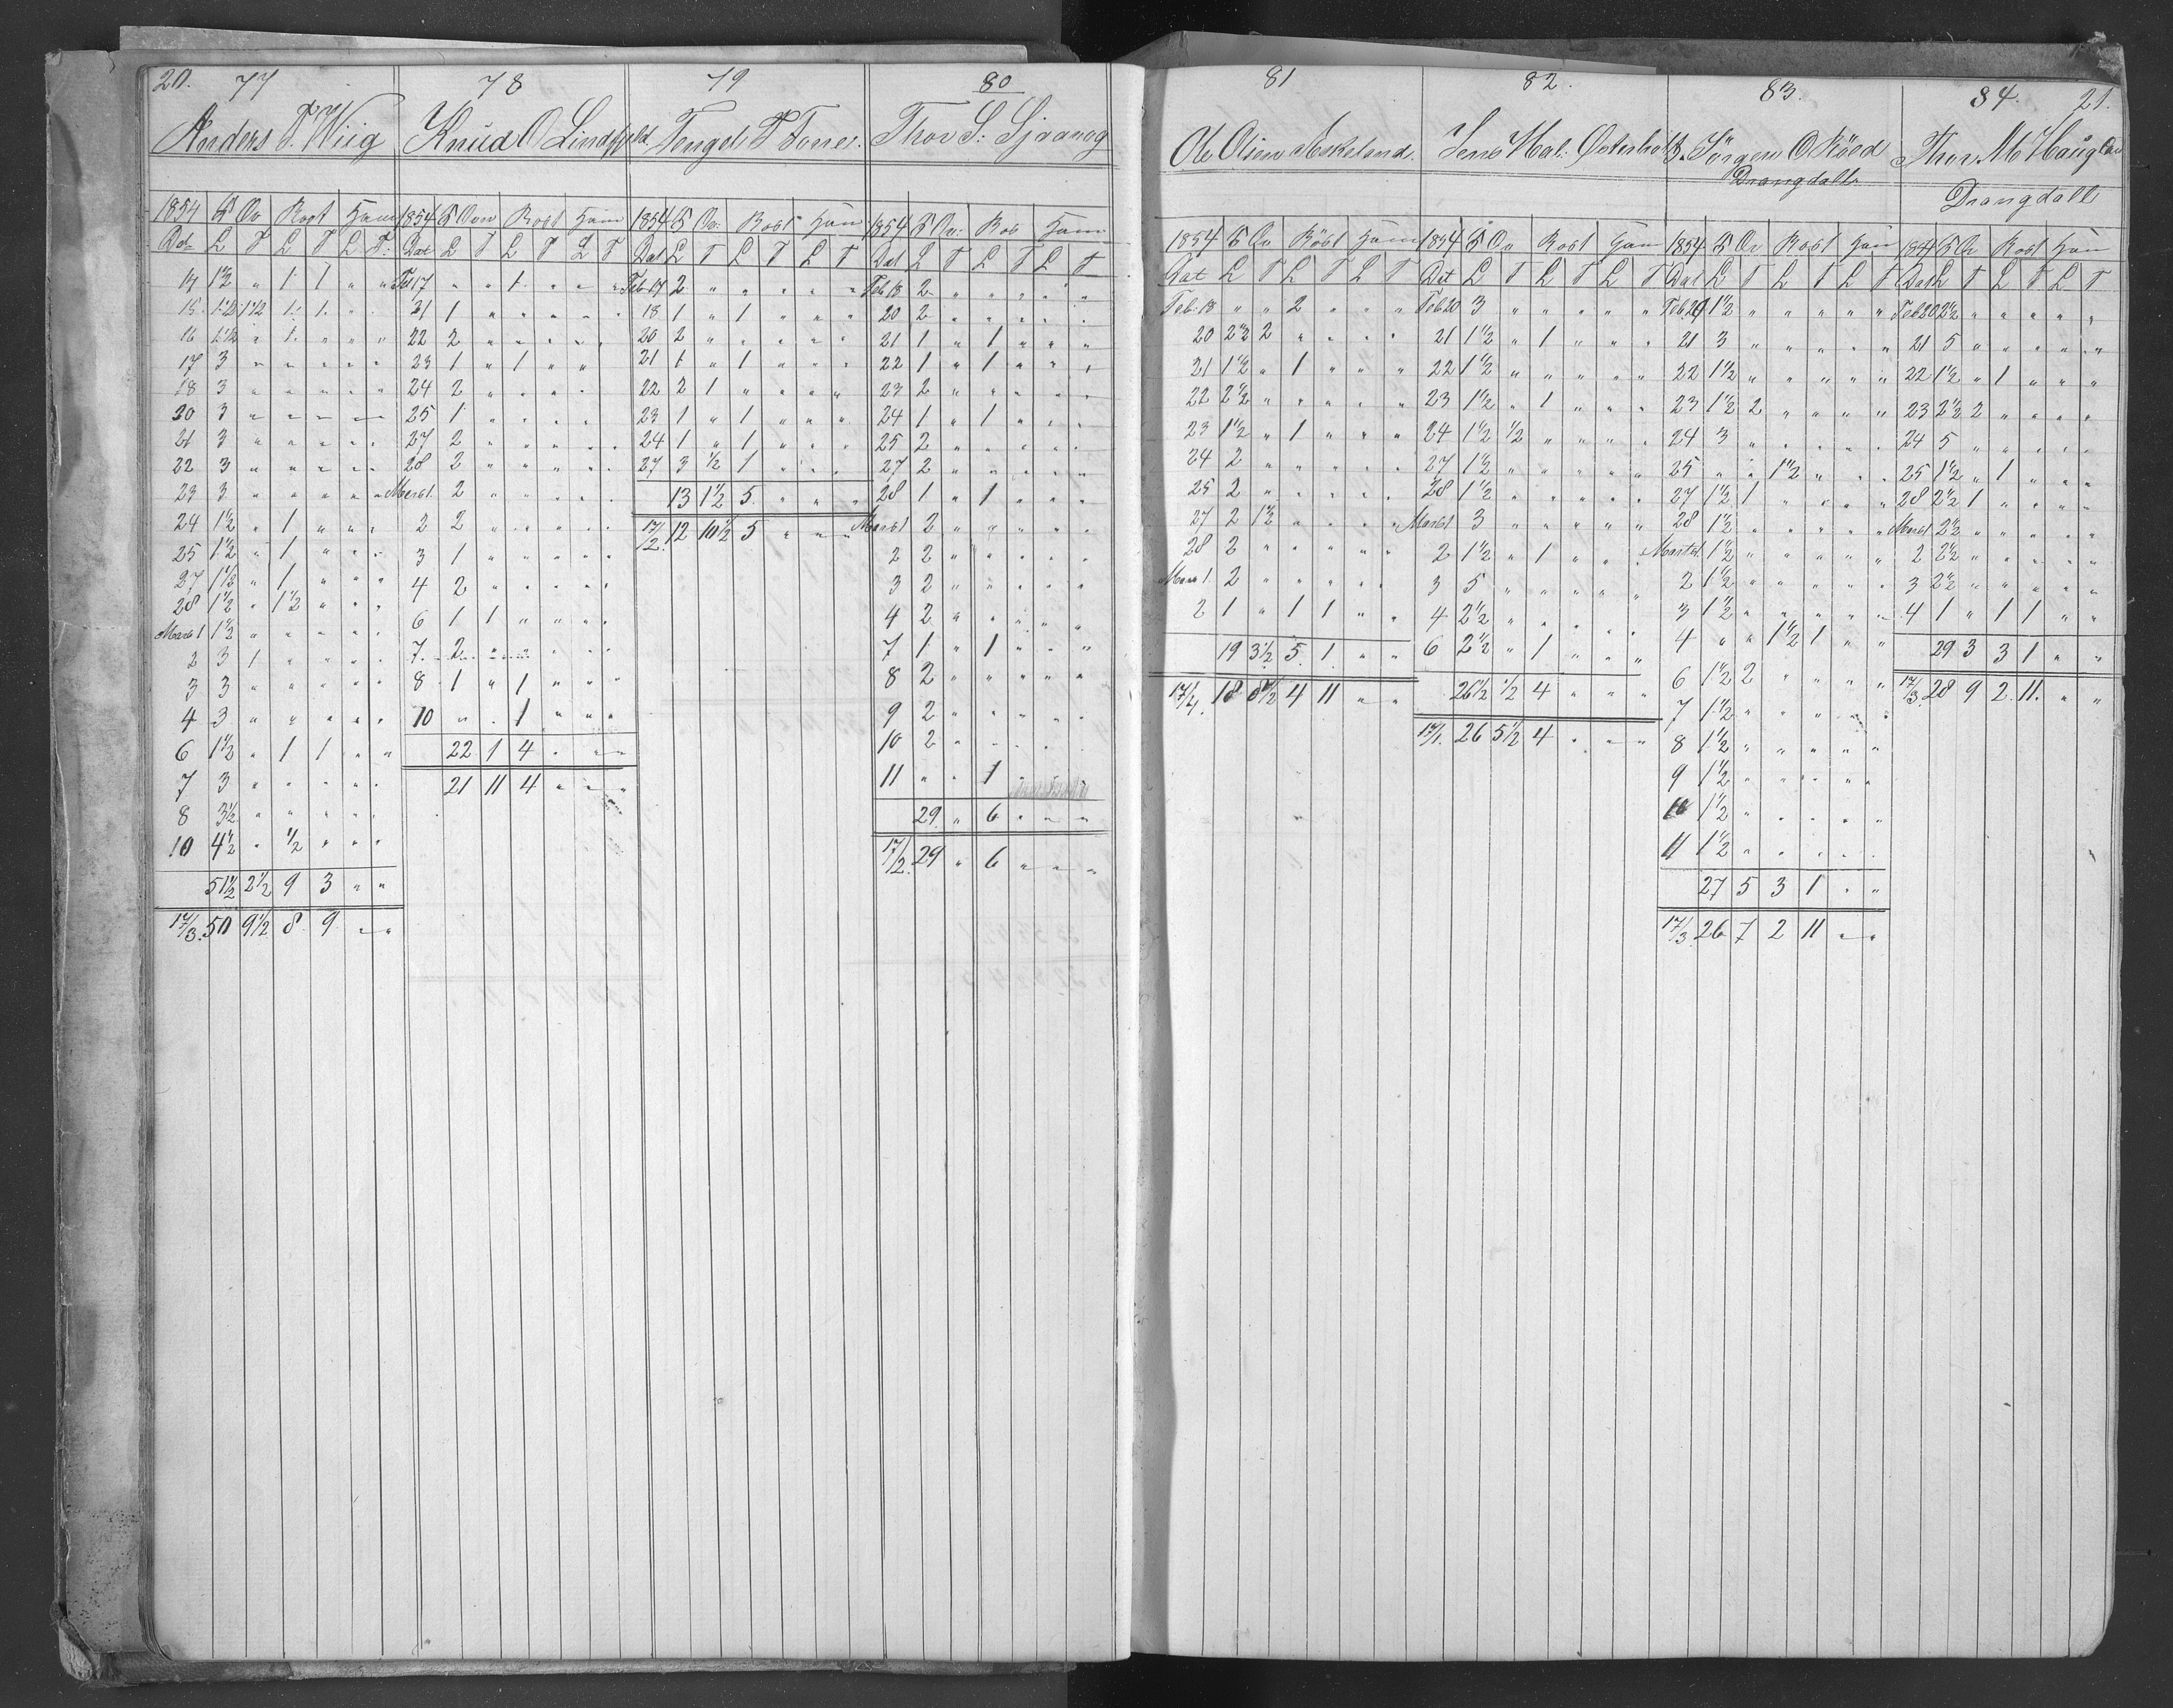 20.
77
Anders T. Wiig
1854 Ov Rost Ham
Dat L T L T L T
14 1½ " 1 1 " "
15 1½ 1½ 1 1 " "
16 1½ " 1 " " "
17 3 " " " " "
18 3 " " " " "
20 3 " " " " "
21 3 " " " " "
22 3 " " " " "
23 3 " " " " "
24 1½ " 1 " " "
25 1½ " 1 " " "
27 1½ " 1 " " "
28 1½ " 1½ " " "
Marts 1 1½ " " " " "
2 3 1 " " " "
3 3 " " " " "
4 3 " " " " "
6 1½ " 1 1 " "
7 3 " " " " "
8 3½ " " " " "
10 4½ " ½ " " "
51½ 2½ 9 3 " "
17/3. 50 9½ 8 9 " "
78
Knud O
1854 Oov Rost Ham
Dat L T L T L T
Feb 17 " " 1 " " "
21 1 " " " " "
22 2 " " " " "
23 1 " 1 " "
24 2 " " " "
25 1 " " " " "
27 2 " " " " "
28 2 " " " " "
Marts 1. 2 " " " " "
2 2 " " " " "
3 1 " " " " "
4 2 " " " " "
6 1 1 " " " "
7 2 " " " " "
8 1 " 1 " " "
10 " " 1 " " "
22 1 4 " " "
21 11 4 " " "
79
Tengel T Tones.
1854 Ov: Rost Ham
Dat L T L T L T
Feb 17 2 " " " " "
18 1 " 1 " " "
20 2 " " " " "
21 1 " 1 " " "
22 2 1 " " " "
23 1 " 1 " " "
24 1 " 1 " " "
27 3 ½ 1 " " "
13 1½ 5 " " "
17/2. 12 10½ 5 " " "
80
Thov S. Sjaavag
1854 Ov: Ros Ham
Dat L T L T L T
Feb 18 2 " " " " "
20 2 " " " " "
21 1 " 1 " " "
22 1 " 1 " " "
23 2 " " " " "
24 1 " 1 " " "
25 2 " " " " "
27 2 " " " " "
28 1 " 1 " " "
Marts 1 2 " " " " "
2 2 " " " " "
3 2 " " " " "
4 2 " " " " "
7 1 " 1 " " "
8 2 " " " " "
9 2 " " " " "
10 2 " " " " "
11 " " 1 "
29 " 6 " " "
17/2. 29 " 6 " " "
81
Ole Olsen Askeland.
1854 Ov Röst Ham
Dat L T L T L T
Feb. 18 " " 2 " " "
20 2½ 2 " " " "
21 1½ " 1 " " "
22 2½ " " " " "
23 1½ " 1 " " "
24 2 " " " " "
25 2 " " " " "
27 2 1½ " " " "
28 2 " " " " "
Mars 1. 2 " " " " "
2 1 " 1 1 " "
19 3½ 5 1 " "
17/4. 18 8½ 4 11 " "
82.
Jens Hal: Østerholt
1854 Ov Rost Ham
Dat L T L T L T
Feb 20 3 " " " " "
21 1½ " 1 " " "
22 1½ " " " " "
23 1½ " 1 " " "
24 1½ ½ " " " "
27 1½ " " " " "
28 1½ " " " " "
Marts 1 3 " " " " "
2 1½ " 1 " " "
3 5 " " " " "
4 2½ " " " " "
6 2½ " 1 " " "
26½ ½ 4 " " "
17/1. 26 5½ 4 " " "
83.
Jörgen O Rööd
Drangdall
1854 Ov Rost Ham
Dat L T L T L T
Feb 20 1½ " " " " "
21 3 " " " " "
22 1½ " " " " "
23 1½ 2 " " " "
24 3 " " " " "
25 " " 1½ " " "
27 1½ 1 " " " "
28 1½ " " " " "
Marts 1. 1½ " " " " "
2 1½ " " " " "
3 1½ " " " " "
4 " " 1½ 1 " "
6 1½ 2 " " " "
7 1½ " " " " "
8 1½ " " " " "
9 1½ " " " " "
10 1½ " " " " "
11 1½ " " " " "
27 5 3 1 " "
17/3. 26 7 2 11 " "
84.
21.
Thov M Haugland
Drangdall
Ov Rost Ham
Dat L T L T L T
Feb 20 2½ " " " " "
21 5 " " " " "
22 1½ " 1 " " "
23 2½ 2 " " " "
24 5 " " " " "
25 1½ " 1 " " "
28 2½ 1 " " " "
Marts 1 2½ " " " " "
2 2½ " " " " "
3 2½ " " " " "
4 1 " 1 1 " "
29 3 3 1 " "
17/3. 28 9 2. 11. " "